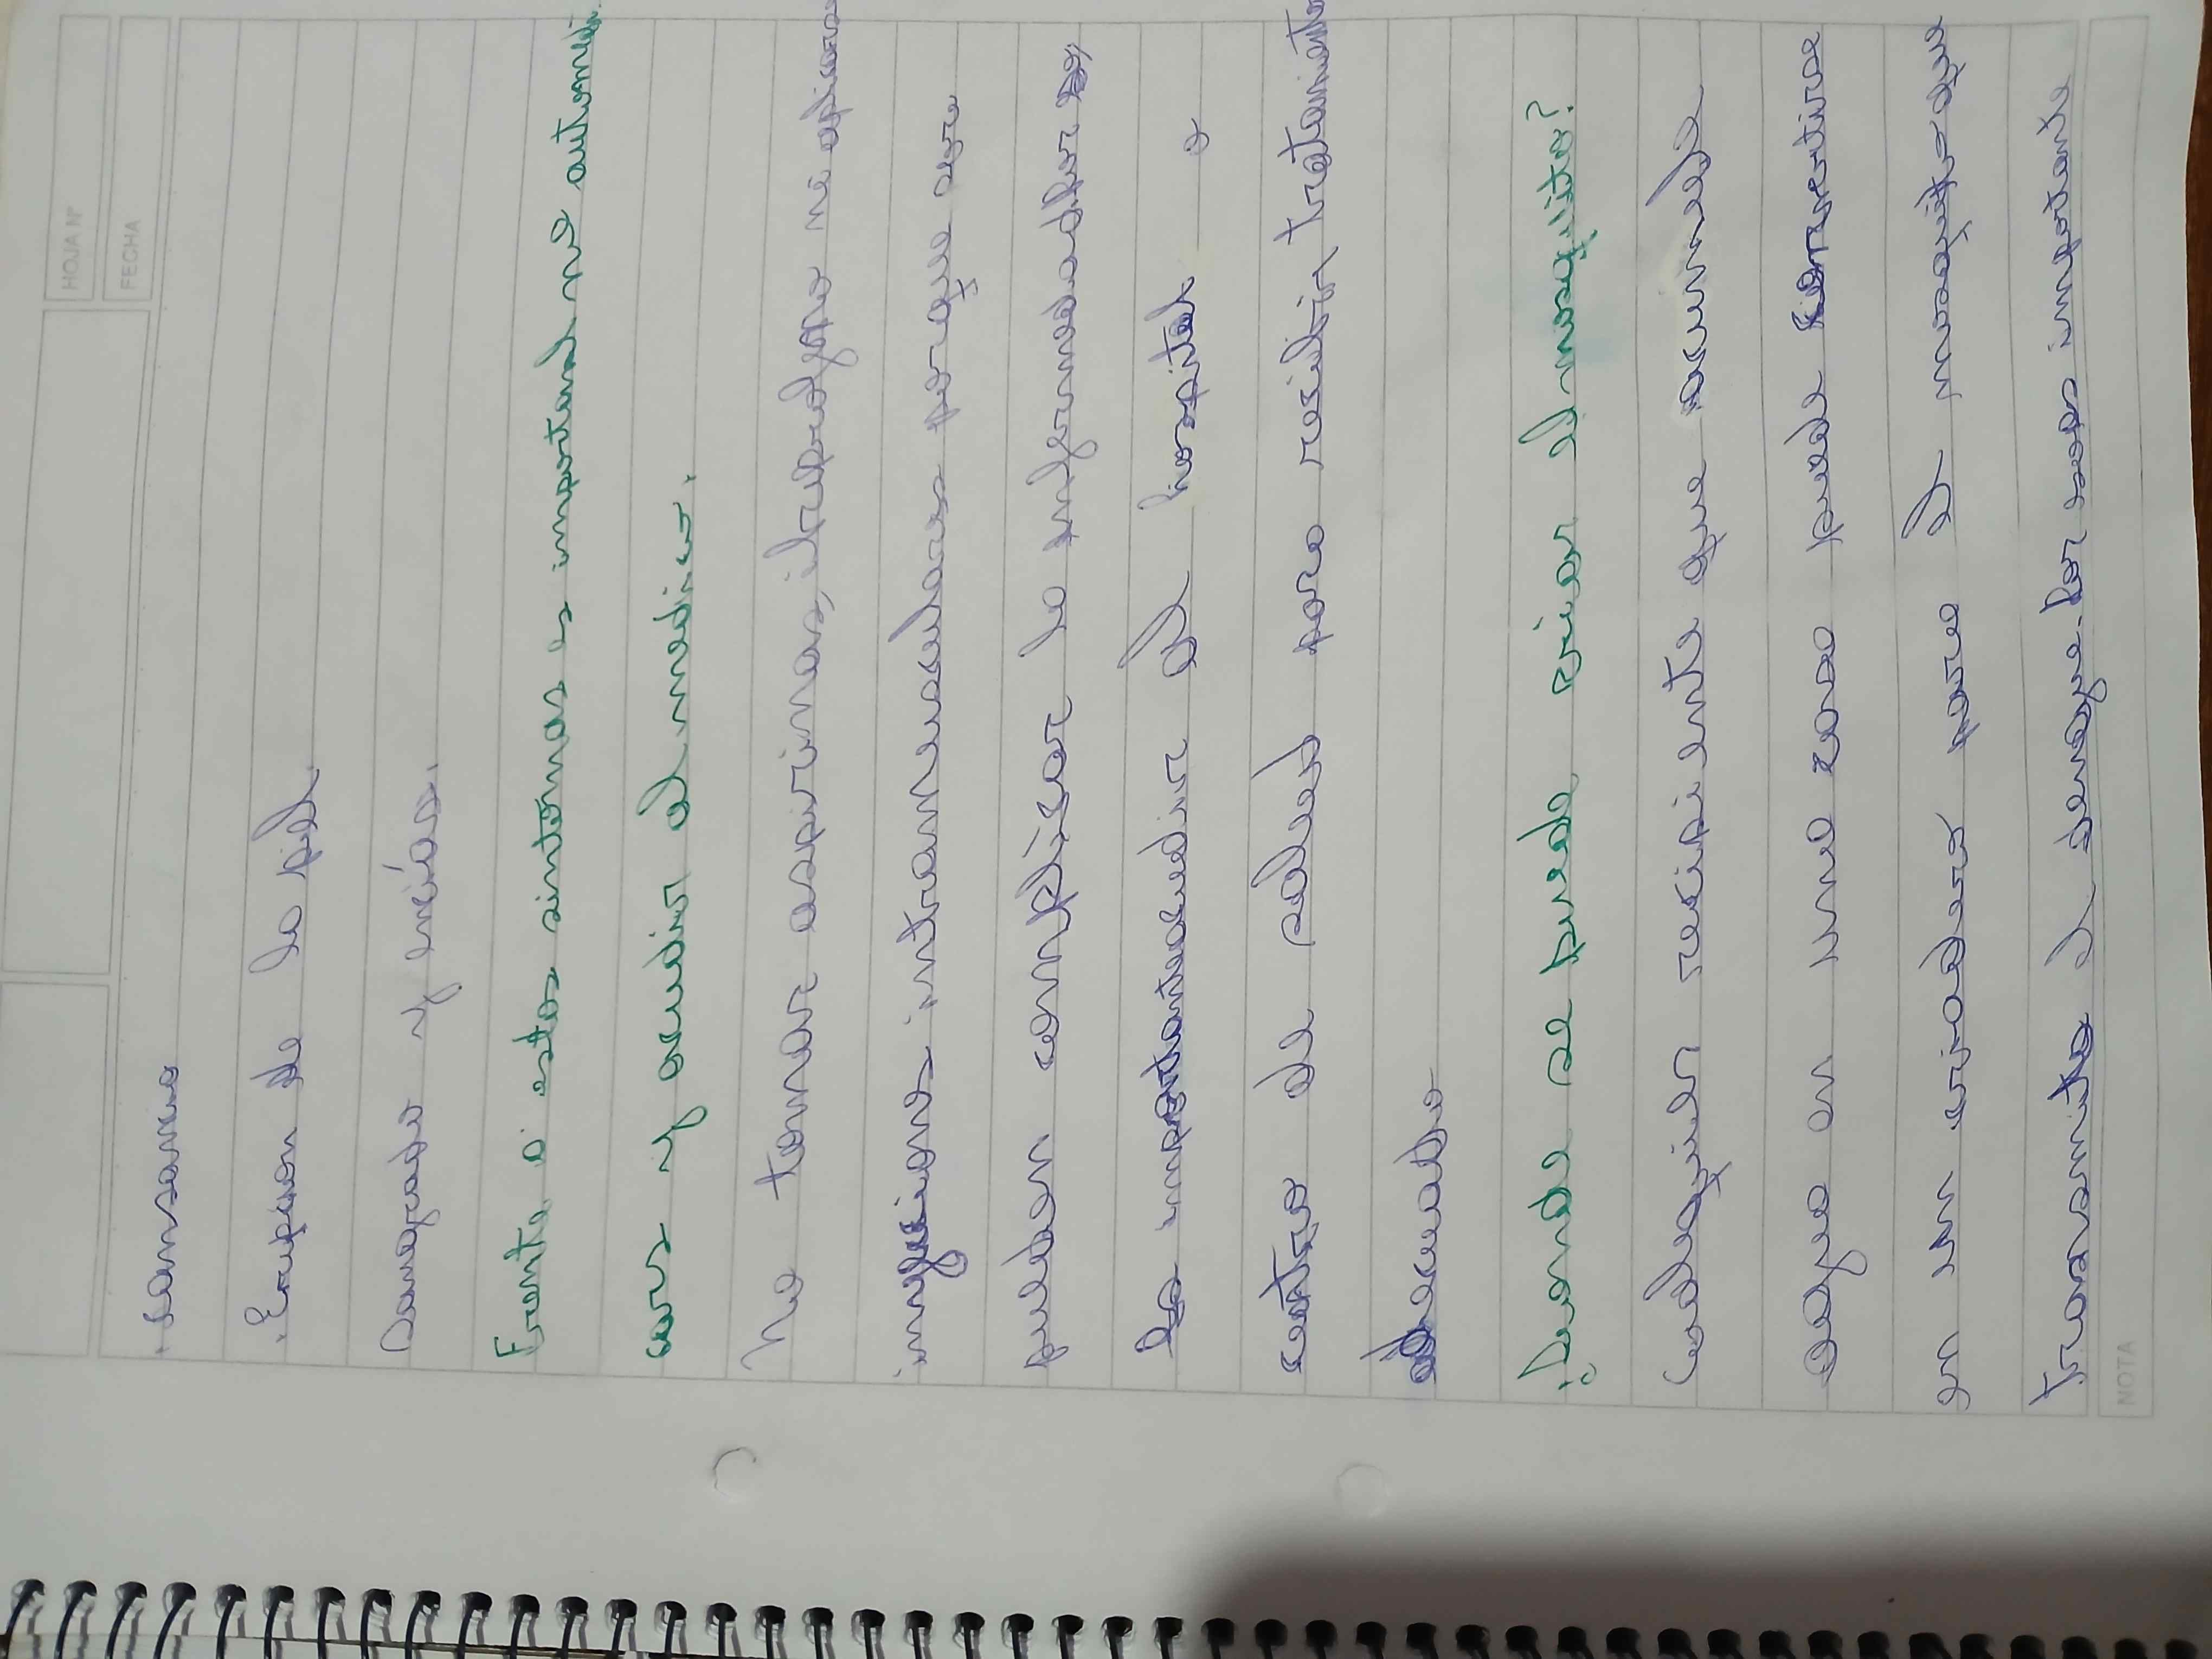 HOJA Nº
FECHA
. cansancio
. Erupcion de la piel.
Sangrado y encías.
Frente a estos sintomas es importand no automedi
cars y acudir al medico.
No tomar aspirinas, ibuprofeno ni aplicars
inyecciones intramusculares porque
pueden complicar la enfermedad por
es importante acudir al hospital o
centro de salud para recibir tratamiento
adecuado
¿Donde se puede criar el mosquito?
Cualaquier recipiente que acumule
agua en una casa puede convertirse
en un criadero para el mosquito que
transmite el dengue. Por eso es importante
NOTA